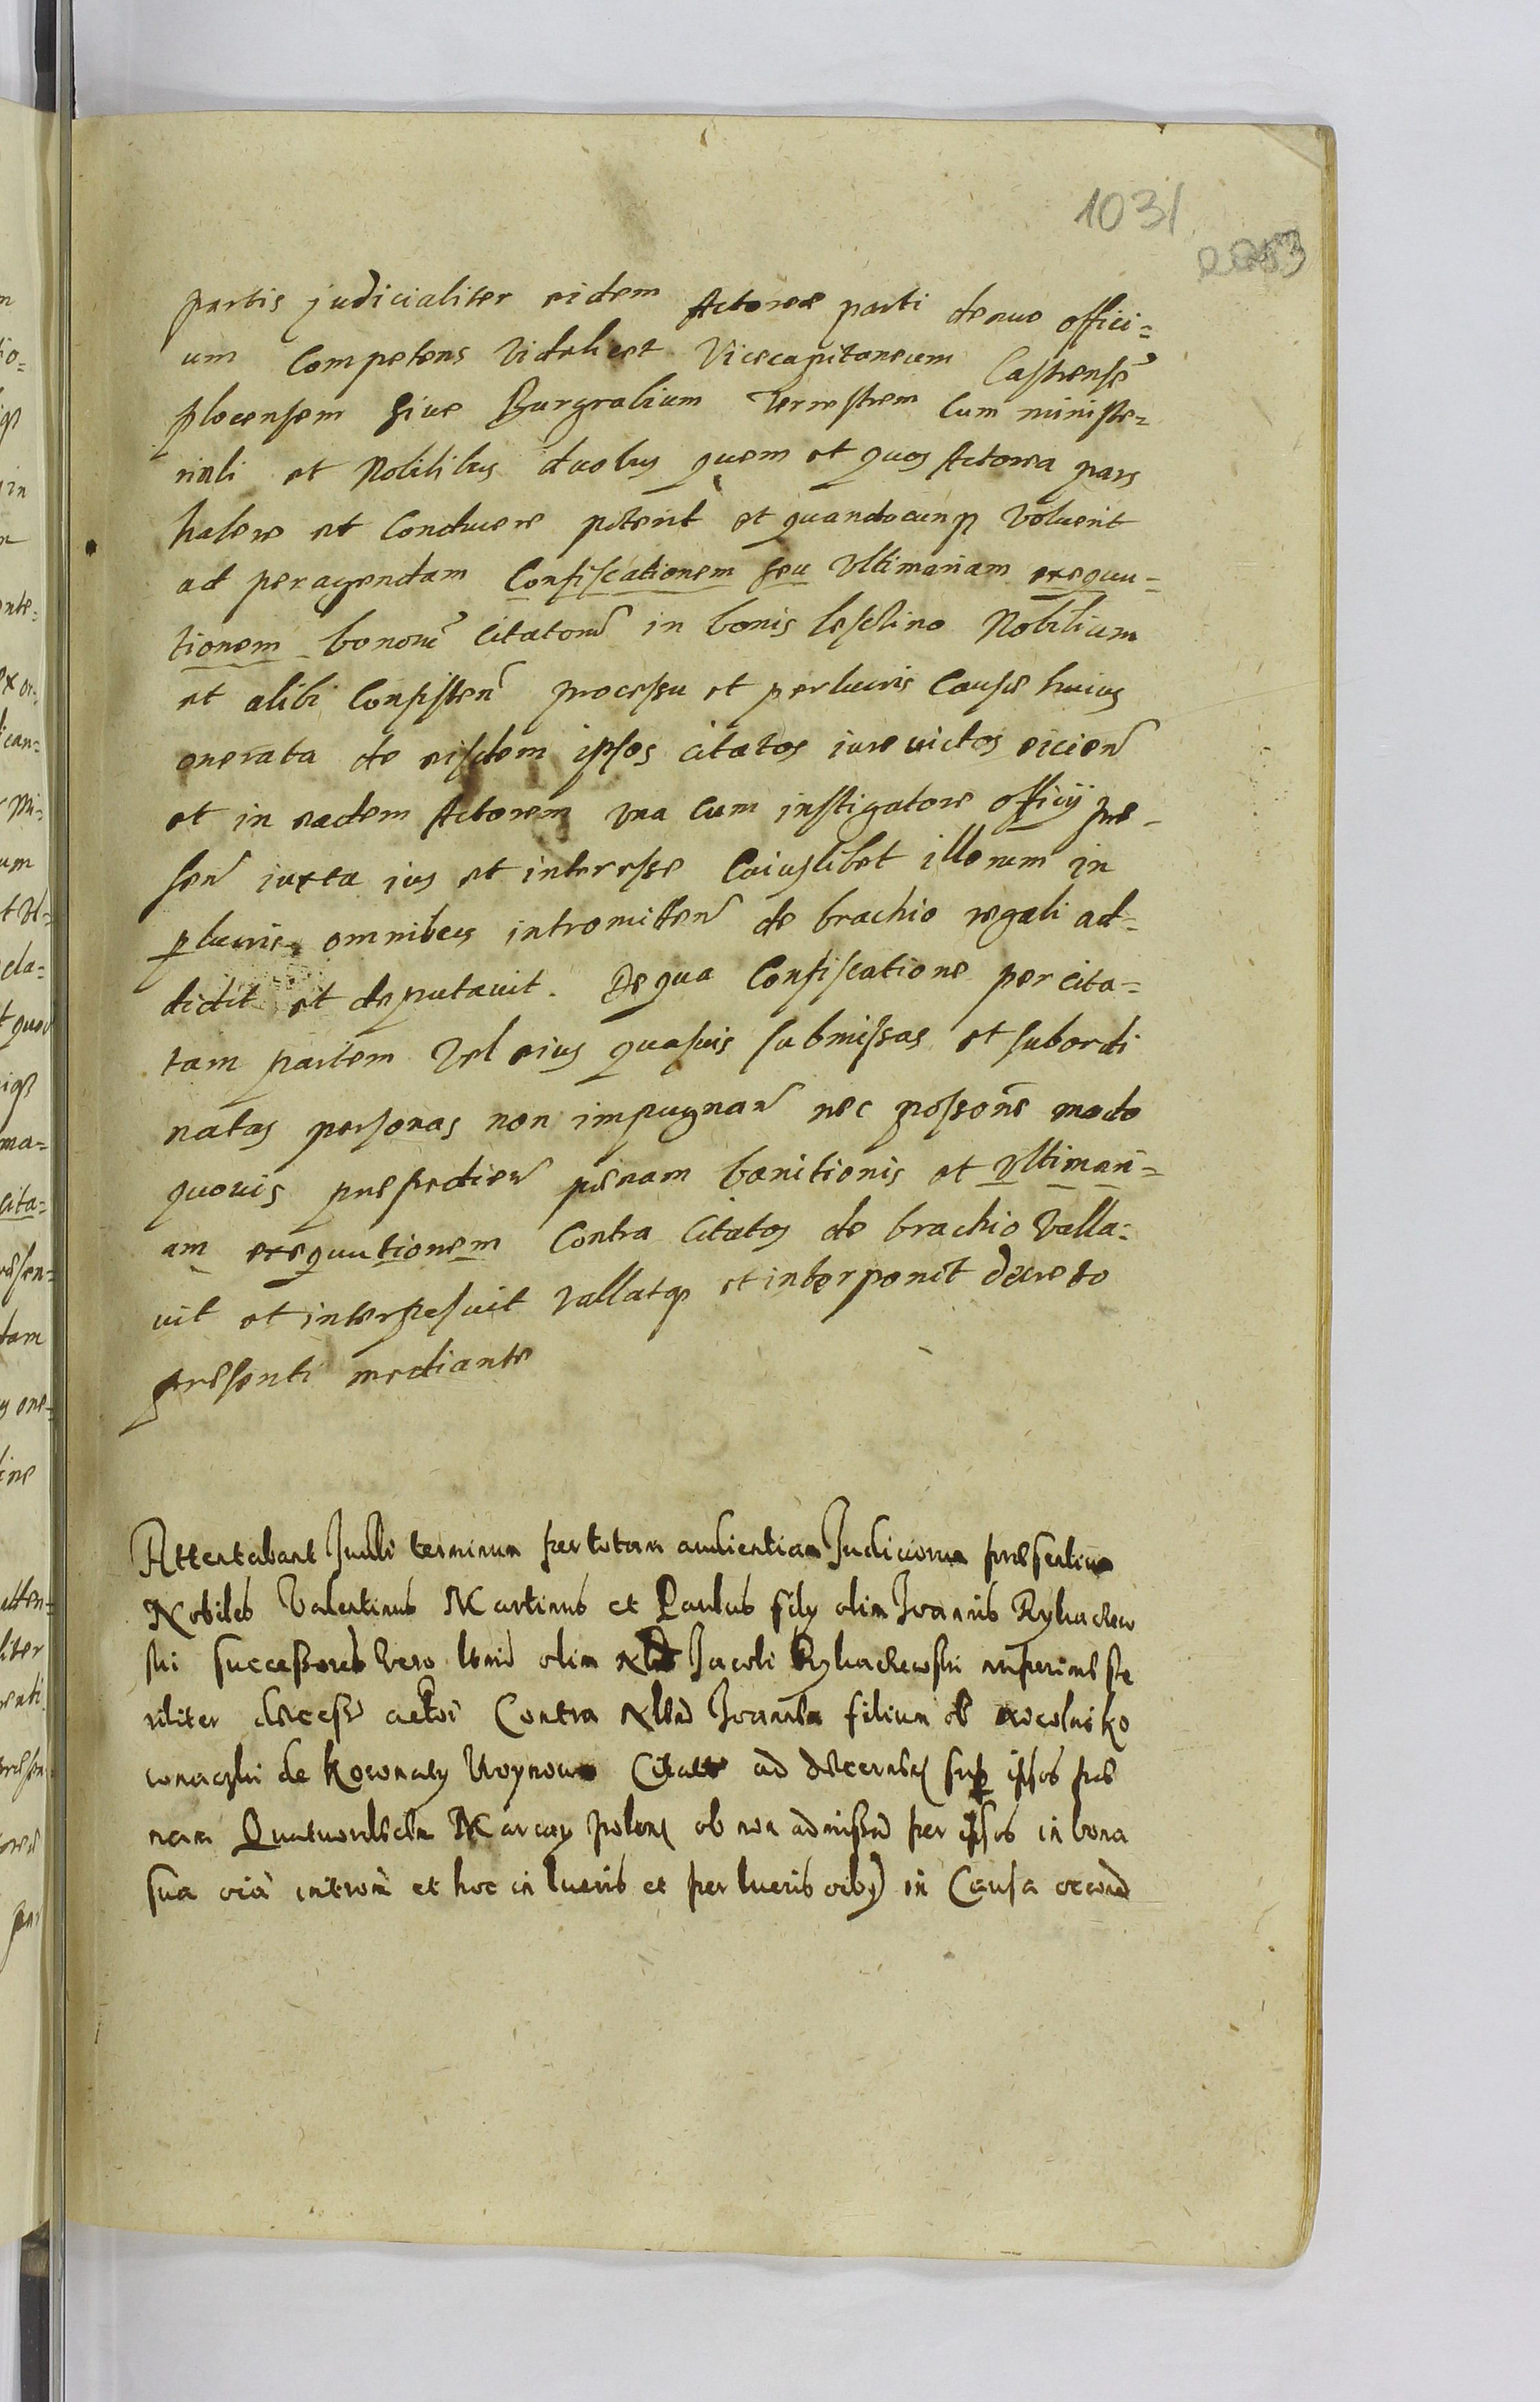 1031
2253
partis judicialiter eidem Actoreæ parti denuo offici=
um Competens Videlicet Vicecapitaneum Castrensē
plocensem siue Burgrabium Terrestrem Cum ministe=
riali et Nobilibus duobus quem et quos Actorea pars
habere et Conducere poterit et quandocunq Voluerit
ad peragendam Confiscationem seu Vltimariam exequu=
tionem bonorū Citatorū in bonis Nobilium
et alibi Consisten processu et perlucris Causæ huius
onerata de eisdem ipsos citatos iure uictos eicien
et in eadem Actorem vna Cum instigatore officij præ=
sen iuxta ius et interesse Cuiuslibet illorum in
plucris omnibus intromitten de brachio regali ad=
didit et deputauit. De qua Confiscatione per cita=
tam partem Vel eius quasuis submissas et subordi
natas personas non impugnan nec possonē modo
quouis præpedien pænam banitionis et Vltimari=
am exequutionem Contra Citatos de brachio Valla=
uit et interposuit Vallatq et interponit decreto
præsenti mediante
Attentabant Judli terminum per totam audientiam Judiciorum præsentium
Nobiles Valentinus Martinus et Paulus filij olim Joannis Rychaclew
ski successores vero olim Jacobi Rychaclewski nuperime ste
riliter decess actoi Contra Joannem filium ol Nicolai Ko
wnaczki de Kownaty Woynowo Citatū ad decernend sup ipsos pæ
nam Quatuordecim Marcar polon ob non admiss per ipsos in bona
sua oiā introm et hoc in lucris et perlucris oib) in Causa